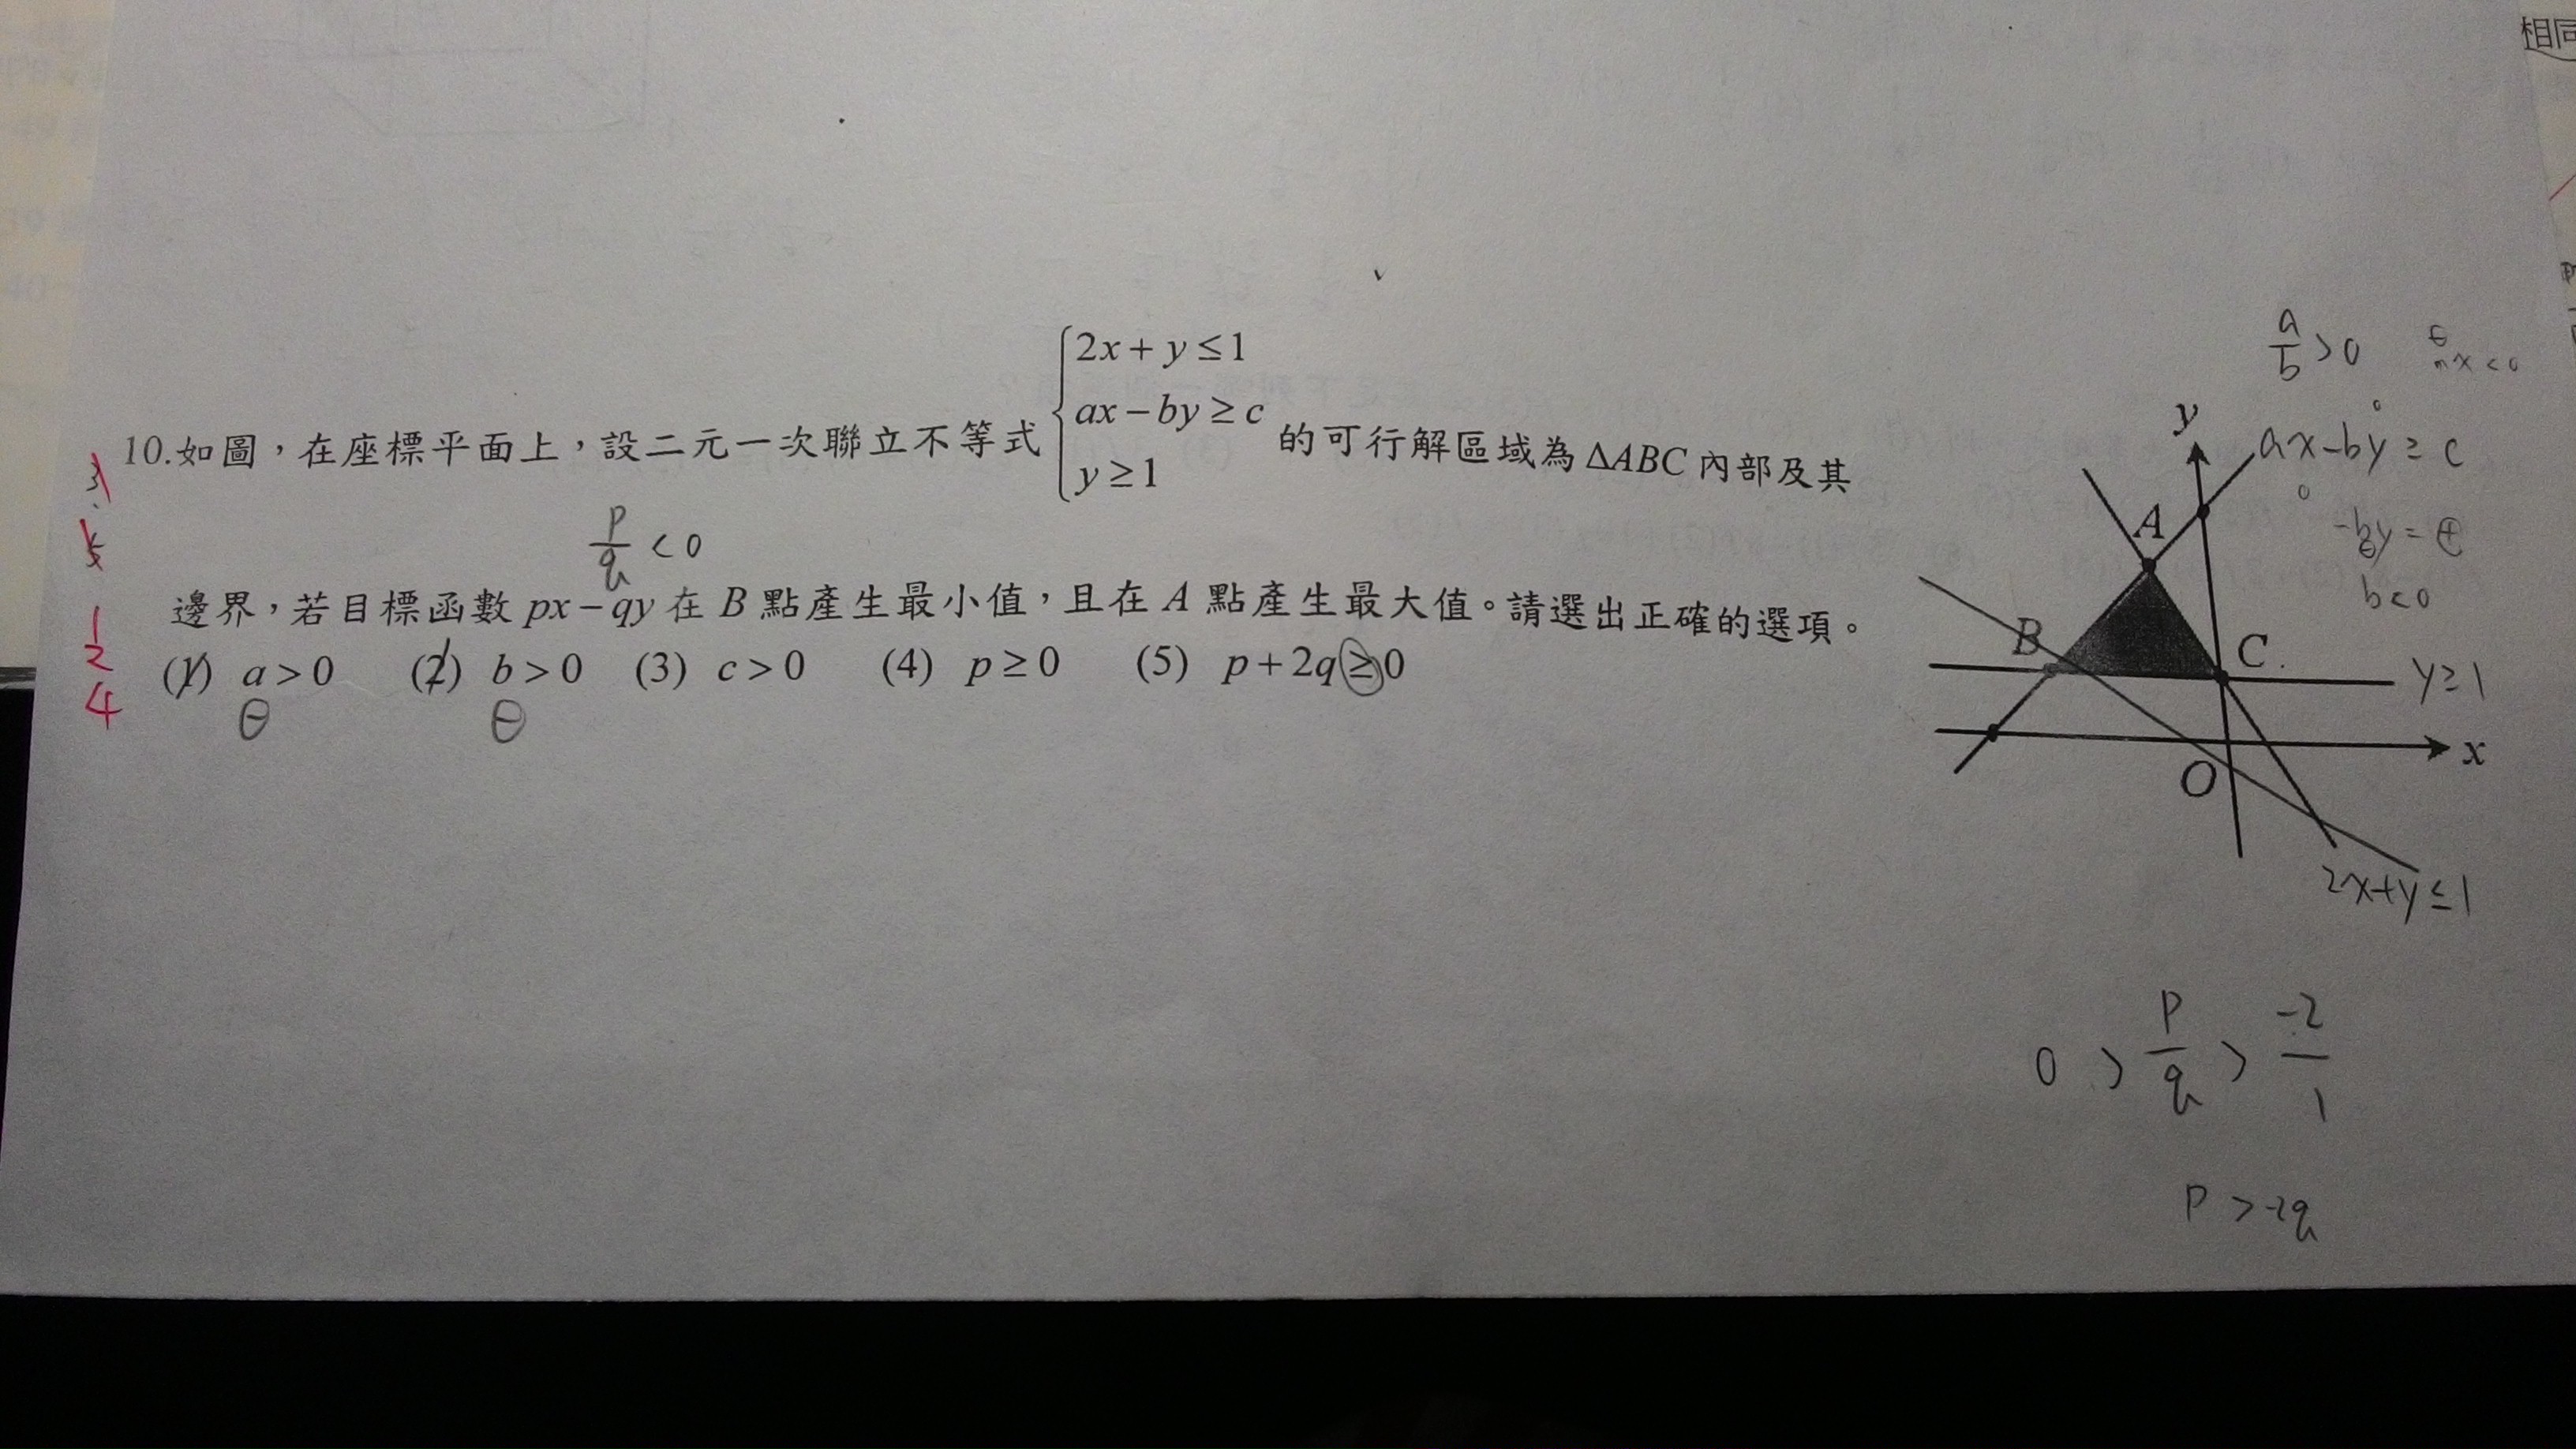 相同
2x + y ≤ 1
10.如圖，在座標平面上，設二元一次聯立不等式 ax − by ≥ c 的可行解區域為 ΔABC 內部及其
y ≥ 1
p/q < 0
邊界，若目標函數 px − qy 在 B 點產生最小值，且在 A 點產生最大值。請選出正確的選項。
(1) a > 0 (2) b > 0 (3) c > 0 (4) p ≥ 0 (5) p + 2q ≥ 0
⊖ ⊖
1
2
4
a/b > 0
y
ax-by ≥ c
A
-by = ⊕
b<0
B
C
y≥1
x
O
2x+y≤1
0 > p/q > -2/1
p > -2q